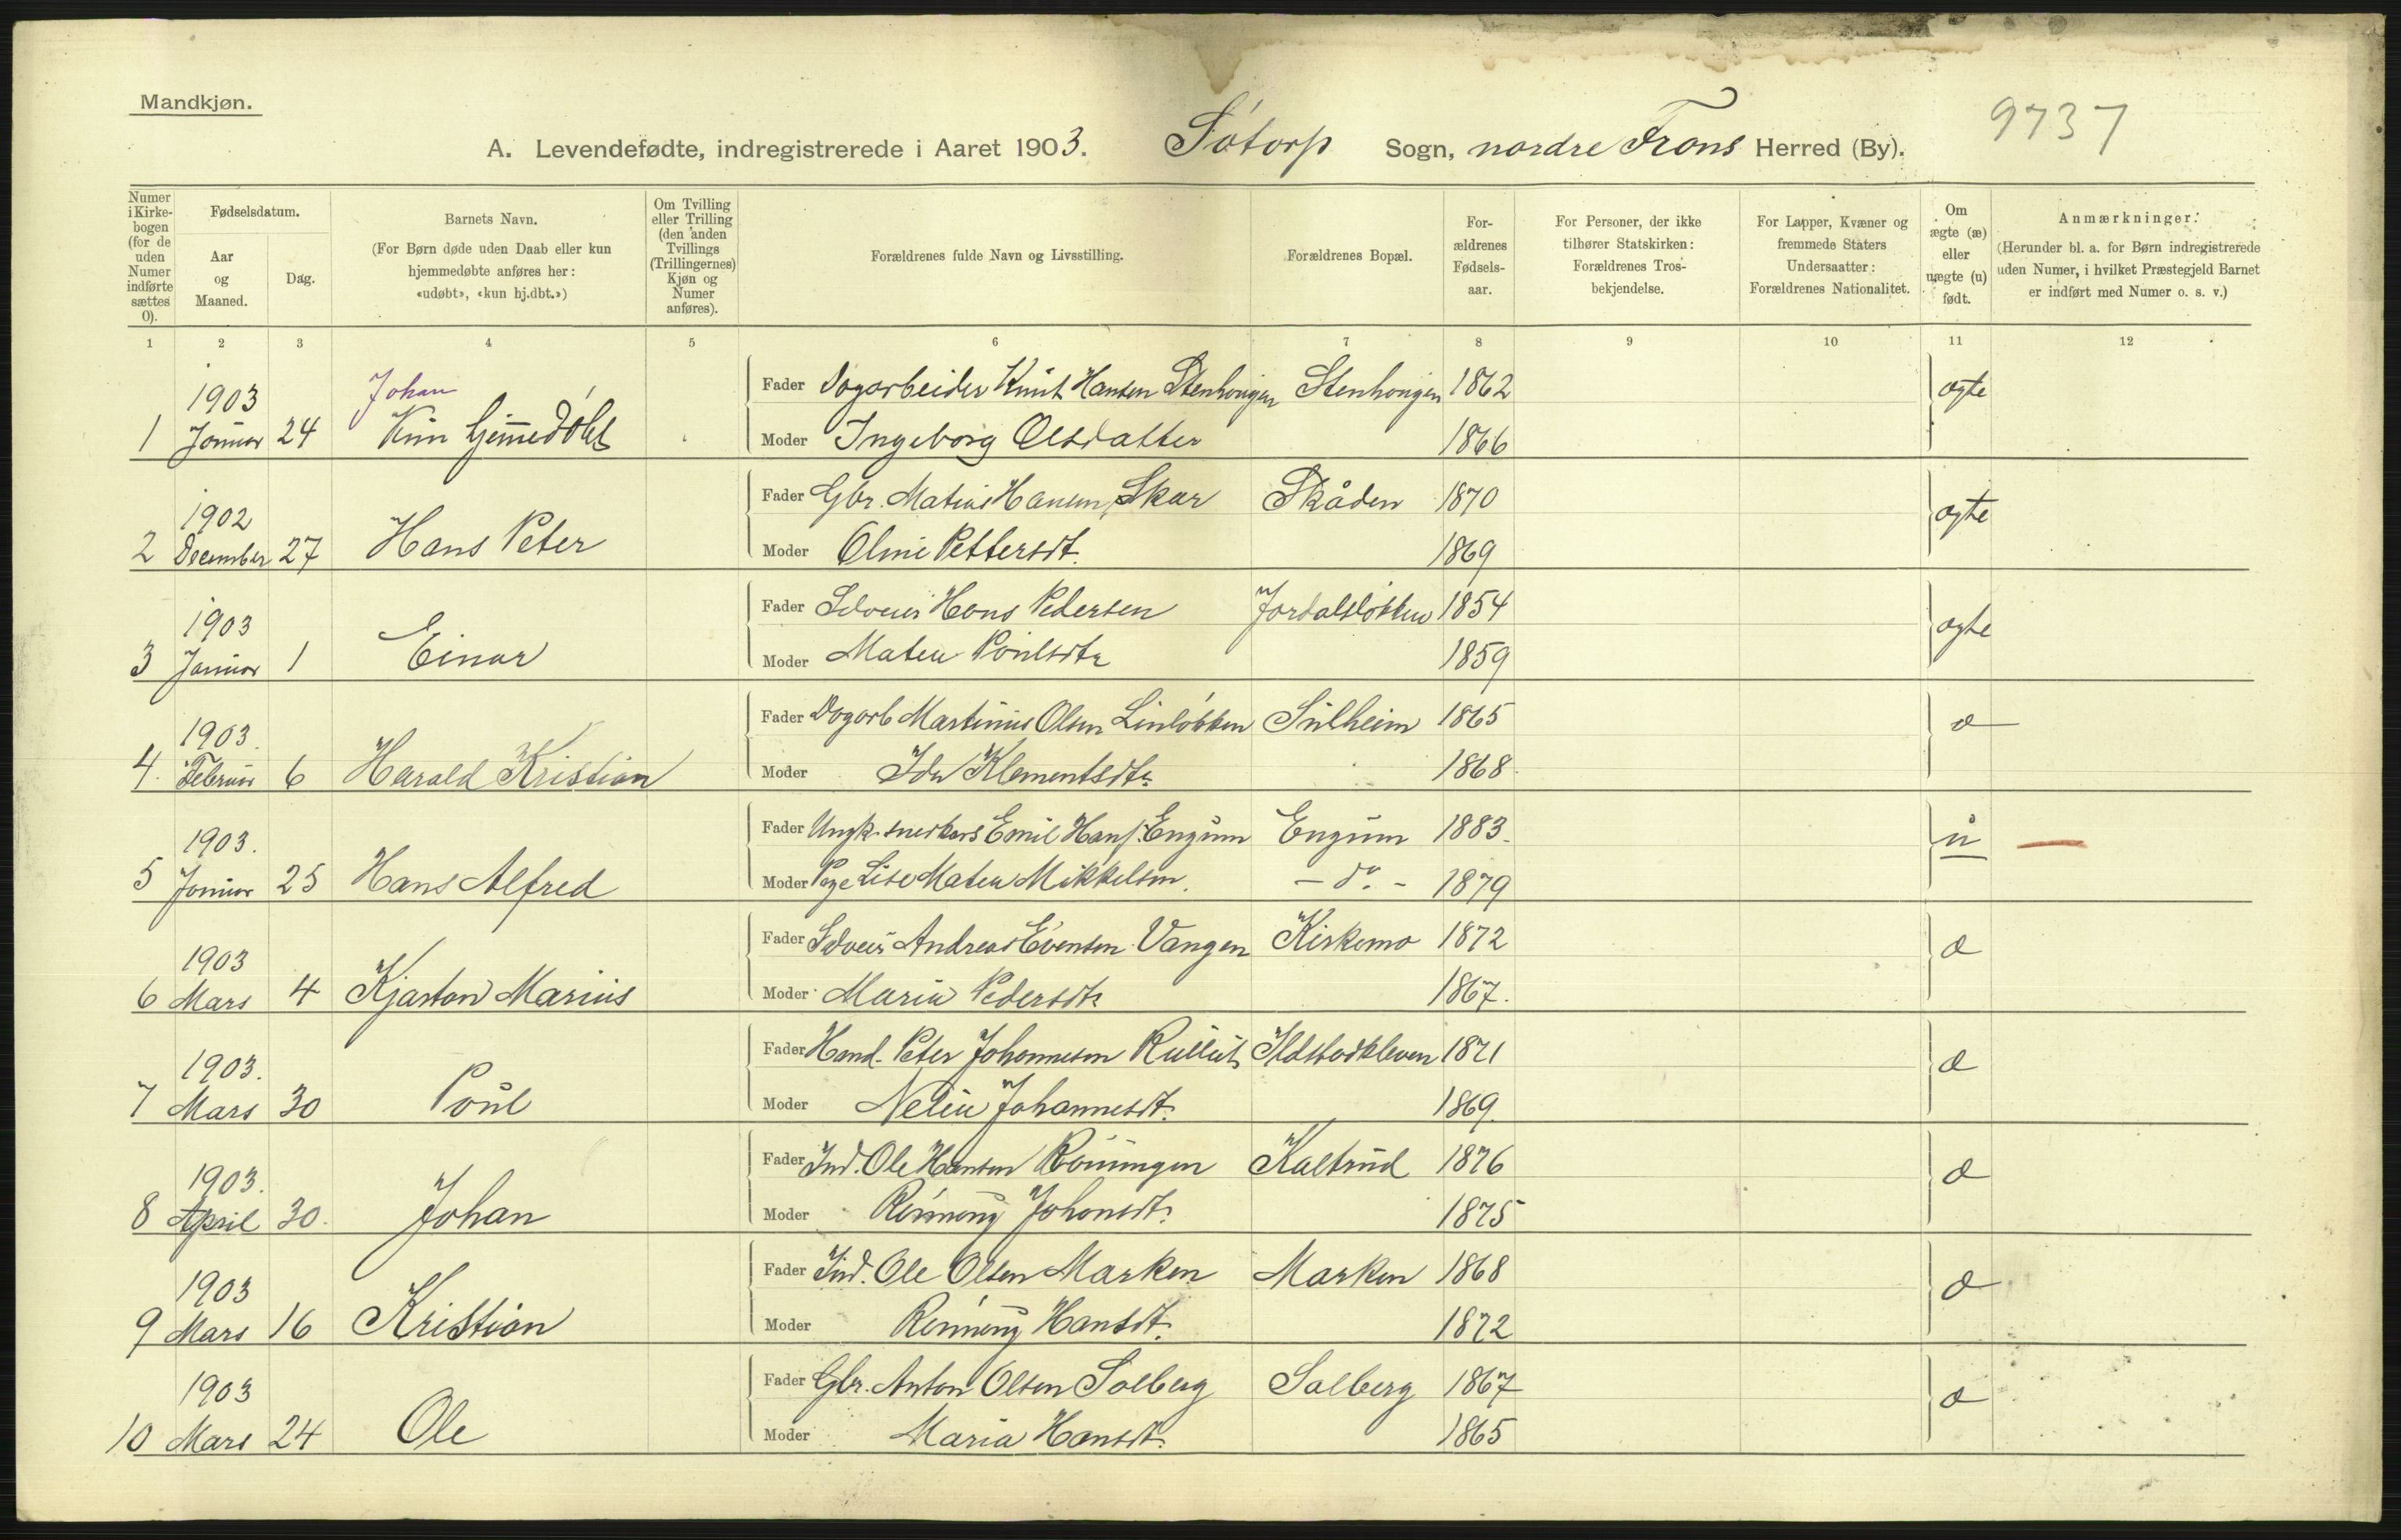 Mandkjøn.
9737
A. Levendefødte, indregistrerede i Aaret 1903. Sótorp Sogn, nordre Frons Herred (By).
Numer i Kirke-bogen (for de uden Numer indførte sættes 0).
Fødselsdatum.
Aar og Maaned.
Dag.
Barnets Navn.
(For Børn døde uden Daab eller kun hjemmedøbte anføres her: «udøbt», «kun hj.dbt.»)
Om Tvilling eller Trilling (den anden Tvillings (Trillingernes) Kjøn og Numer anføres).
Forældrenes fulde Navn og Livsstilling.
Forældrenes Bopæl.
For-ældrenes Fødsels-aar.
For Personer, der ikke tilhører Statskirken: Forældrenes Tros-bekjendelse.
For Lapper, Kvæner og fremmede Staters Undersaatter: Forældrenes Nationalitet.
Om ægte (æ) eller uægte (u) født.
Anmærkninger.
(Herunder bl. a. for Børn indregistrerede uden Numer, i hvilket Præstegjeld Barnet er indført med Numer o. s. v.)
1 2 3 4 5 6 7 8 9 10 11 12
Johan
1903 Fader Dagarbeider Knut Hansen Stenhougen Stenhougen 1862 ægte
1 Januar 24 Kun hjemmedóbt Moder Ingeborg Olsdatter 1866
1902 Fader Gbr. Matius Hansen Skar Skåden 1870 ægte
2 December 27 Hans Peter Moder Oline Pettersdt. 1869
1903 Fader Selveier Hans Pedersen Jordalslökken 1854 ægte
3 Januar 1 Einar Moder Matea Poulsdtr 1859
1903. Fader Dagarb Martinius Olsen Linlökken Sulheim 1865 æ
4. Februar 6 Harald Kristian Moder Ida Klementsdtr 1868.
1903. Fader Ungk. snerkers Emil Hans. Engum Engum 1883. u
5 Januar 25 Hans Alfred Moder Pige Lise Matea Mikkelsen. - do. - 1879
1903 Fader Selveier Andreas Evensen Vangen Kirkemo 1872 æ
6 Mars 4 Kjartan Marius Moder Maria Pedersdtr 1867.
1903. Fader Hand. Peter Johannesen Rullut Ildstadkleven 1871 æ
7 Mars 30 Poul Moder Nelia Johannesdt. 1869.
1903. Fader Ind. Ole Hansen Rönningen Kaltrud 1876 æ
8 April 30. Johan Moder Rönnoug Johansdt. 1875
1903 Fader Ind. Ole Olsen Marken Marken 1868 æ
9 Mars 16 Kristian Moder Rönnoug Hansdt. 1872
1903 Fader Gbr. Anton Olsen Solberg Solberg 1867 æ
10 Mars 24 Ole Moder Maria Hansdt. 1865